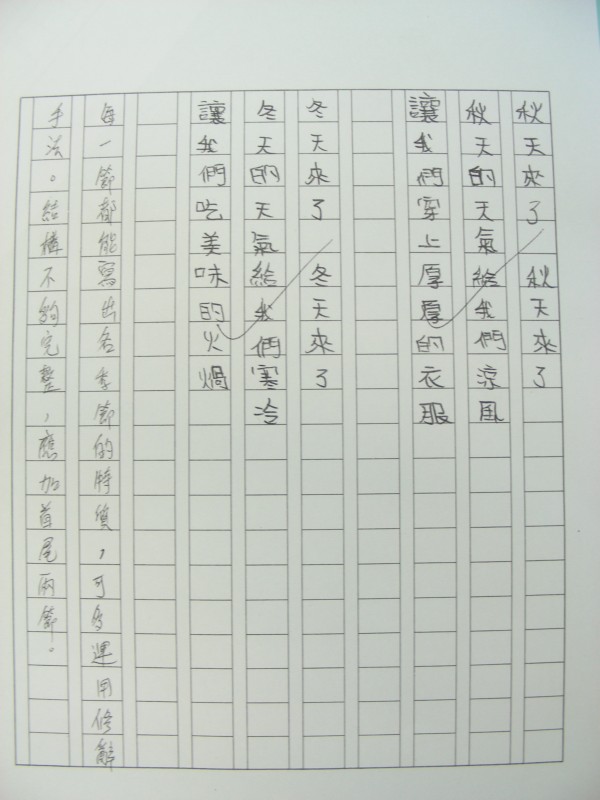 秋天來了 秋天來了
秋天的天氣給我們涼風
讓我們穿上厚厚的衣服
冬天來了 冬天來了
冬天的天氣給我們寒冷
讓我們吃美味的火鍋
每一節都能寫出各季節的特質，可多運用修辭
手法。結構不夠完整，應加首尾兩節。